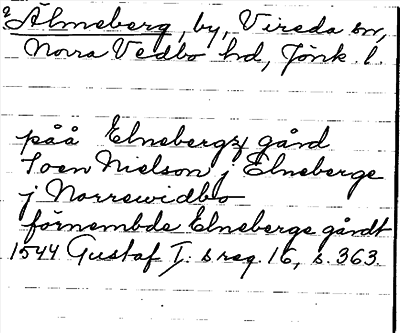 Älmeberg, by, Vireda sn,
Norra Vedbo hd, Jönk. l.
påå Elnebergz gård
Joen Nielson j Elneberge
j Norrewidbo
förnembde Elneberge gårdt
1544 Gustaf I: s reg. 16, s. 363.